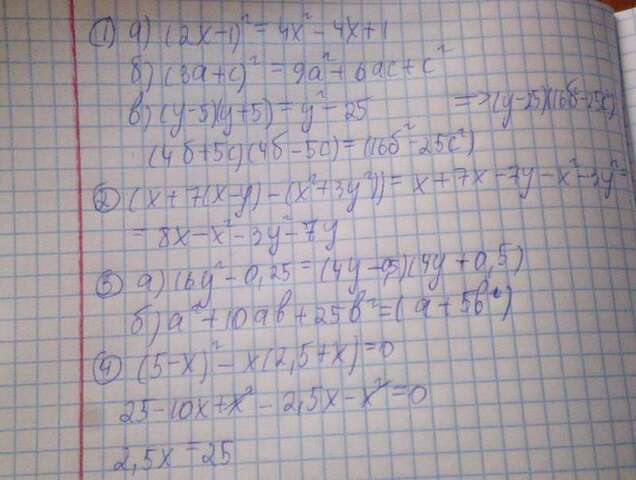 ① а) (2x-1)² = 4x² - 4x + 1
б) (3a+c)² = 9a² + 6ac + c²
в) (y-5)(y+5) = y² - 25 => (y-25)(16б²-25c²)
(4б+5c)(4б-5c) = (16б² - 25c²)
② (x+7(x-y) - (x²+3y²)) = x+7x-7y-x²-3y² =
= 8x-x²-3y²-7y
③ а) 16y² - 0,25 = (4y-0,5)(4y+0,5)
б) a² + 10ab + 25b² = (a+5b²)
④ (5-x)² - x(2,5+x) = 0
25-10x+x² - 2,5x-x² = 0
2,5x = 25